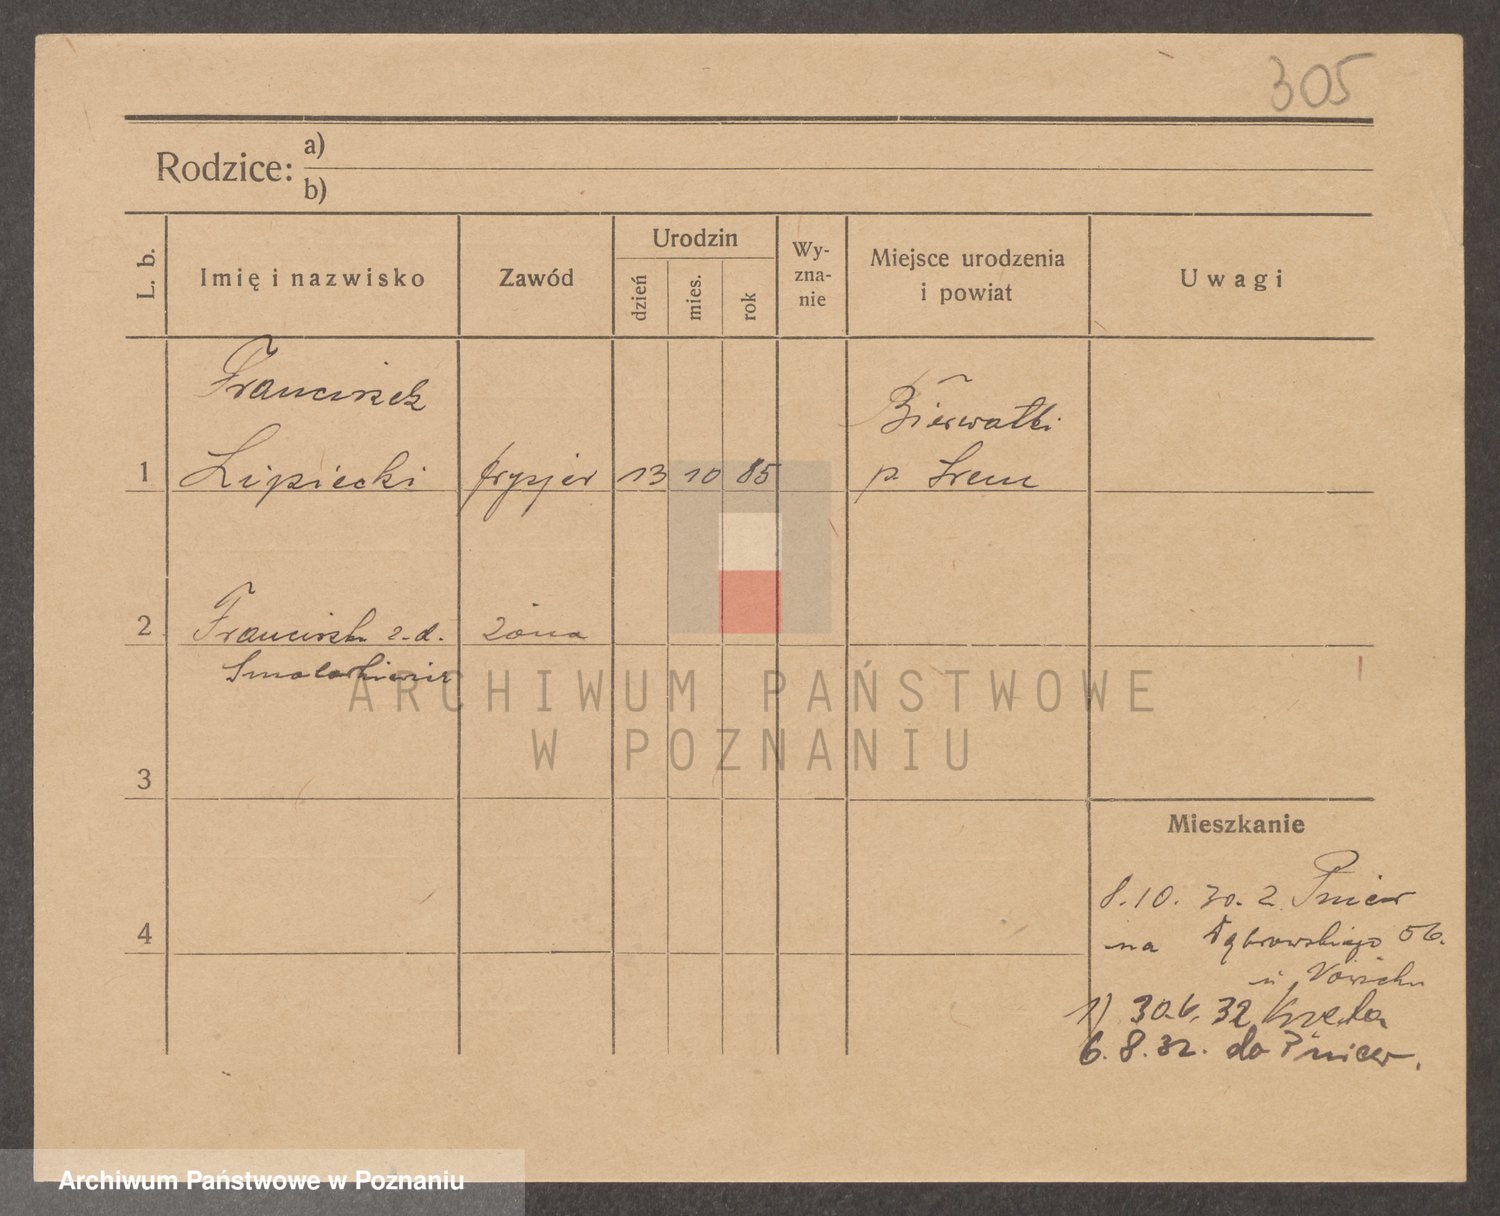 305
Rodzice: a)
b)
L. b.
Imię i nazwisko
Zawód
Urodzin
dzień
mies.
rok
Wy-
zna-
nie
Miejsce urodzenia
i powiat
Uwagi
Franciszek
1 Lipiecki fryzjer 13 10 85
p. Śrem
2 z.d. żona
3
4
Mieszkanie
8.10. 30. z Pniew
na Dąbrowskiego 56.
u
1) 30.6. 32
6. 8. 32. do Pniew.
ARCHIWUM PAŃSTWOWE
W POZNANIU
Archiwum Państwowe w Poznaniu